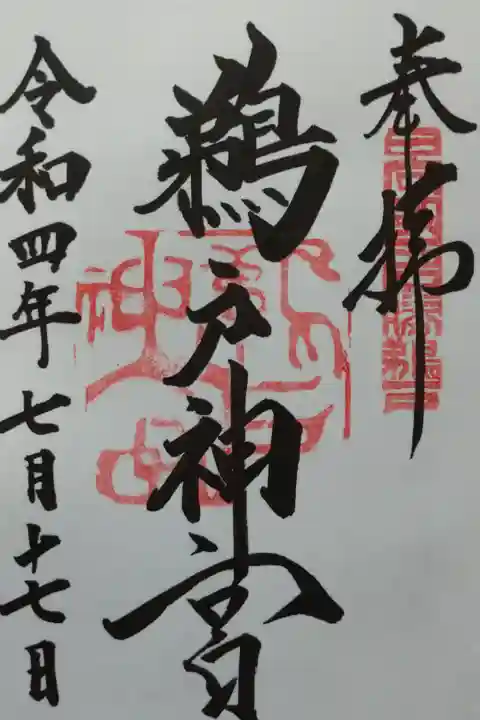 奉拝
鵜戸神宮
令和四年七月十七日